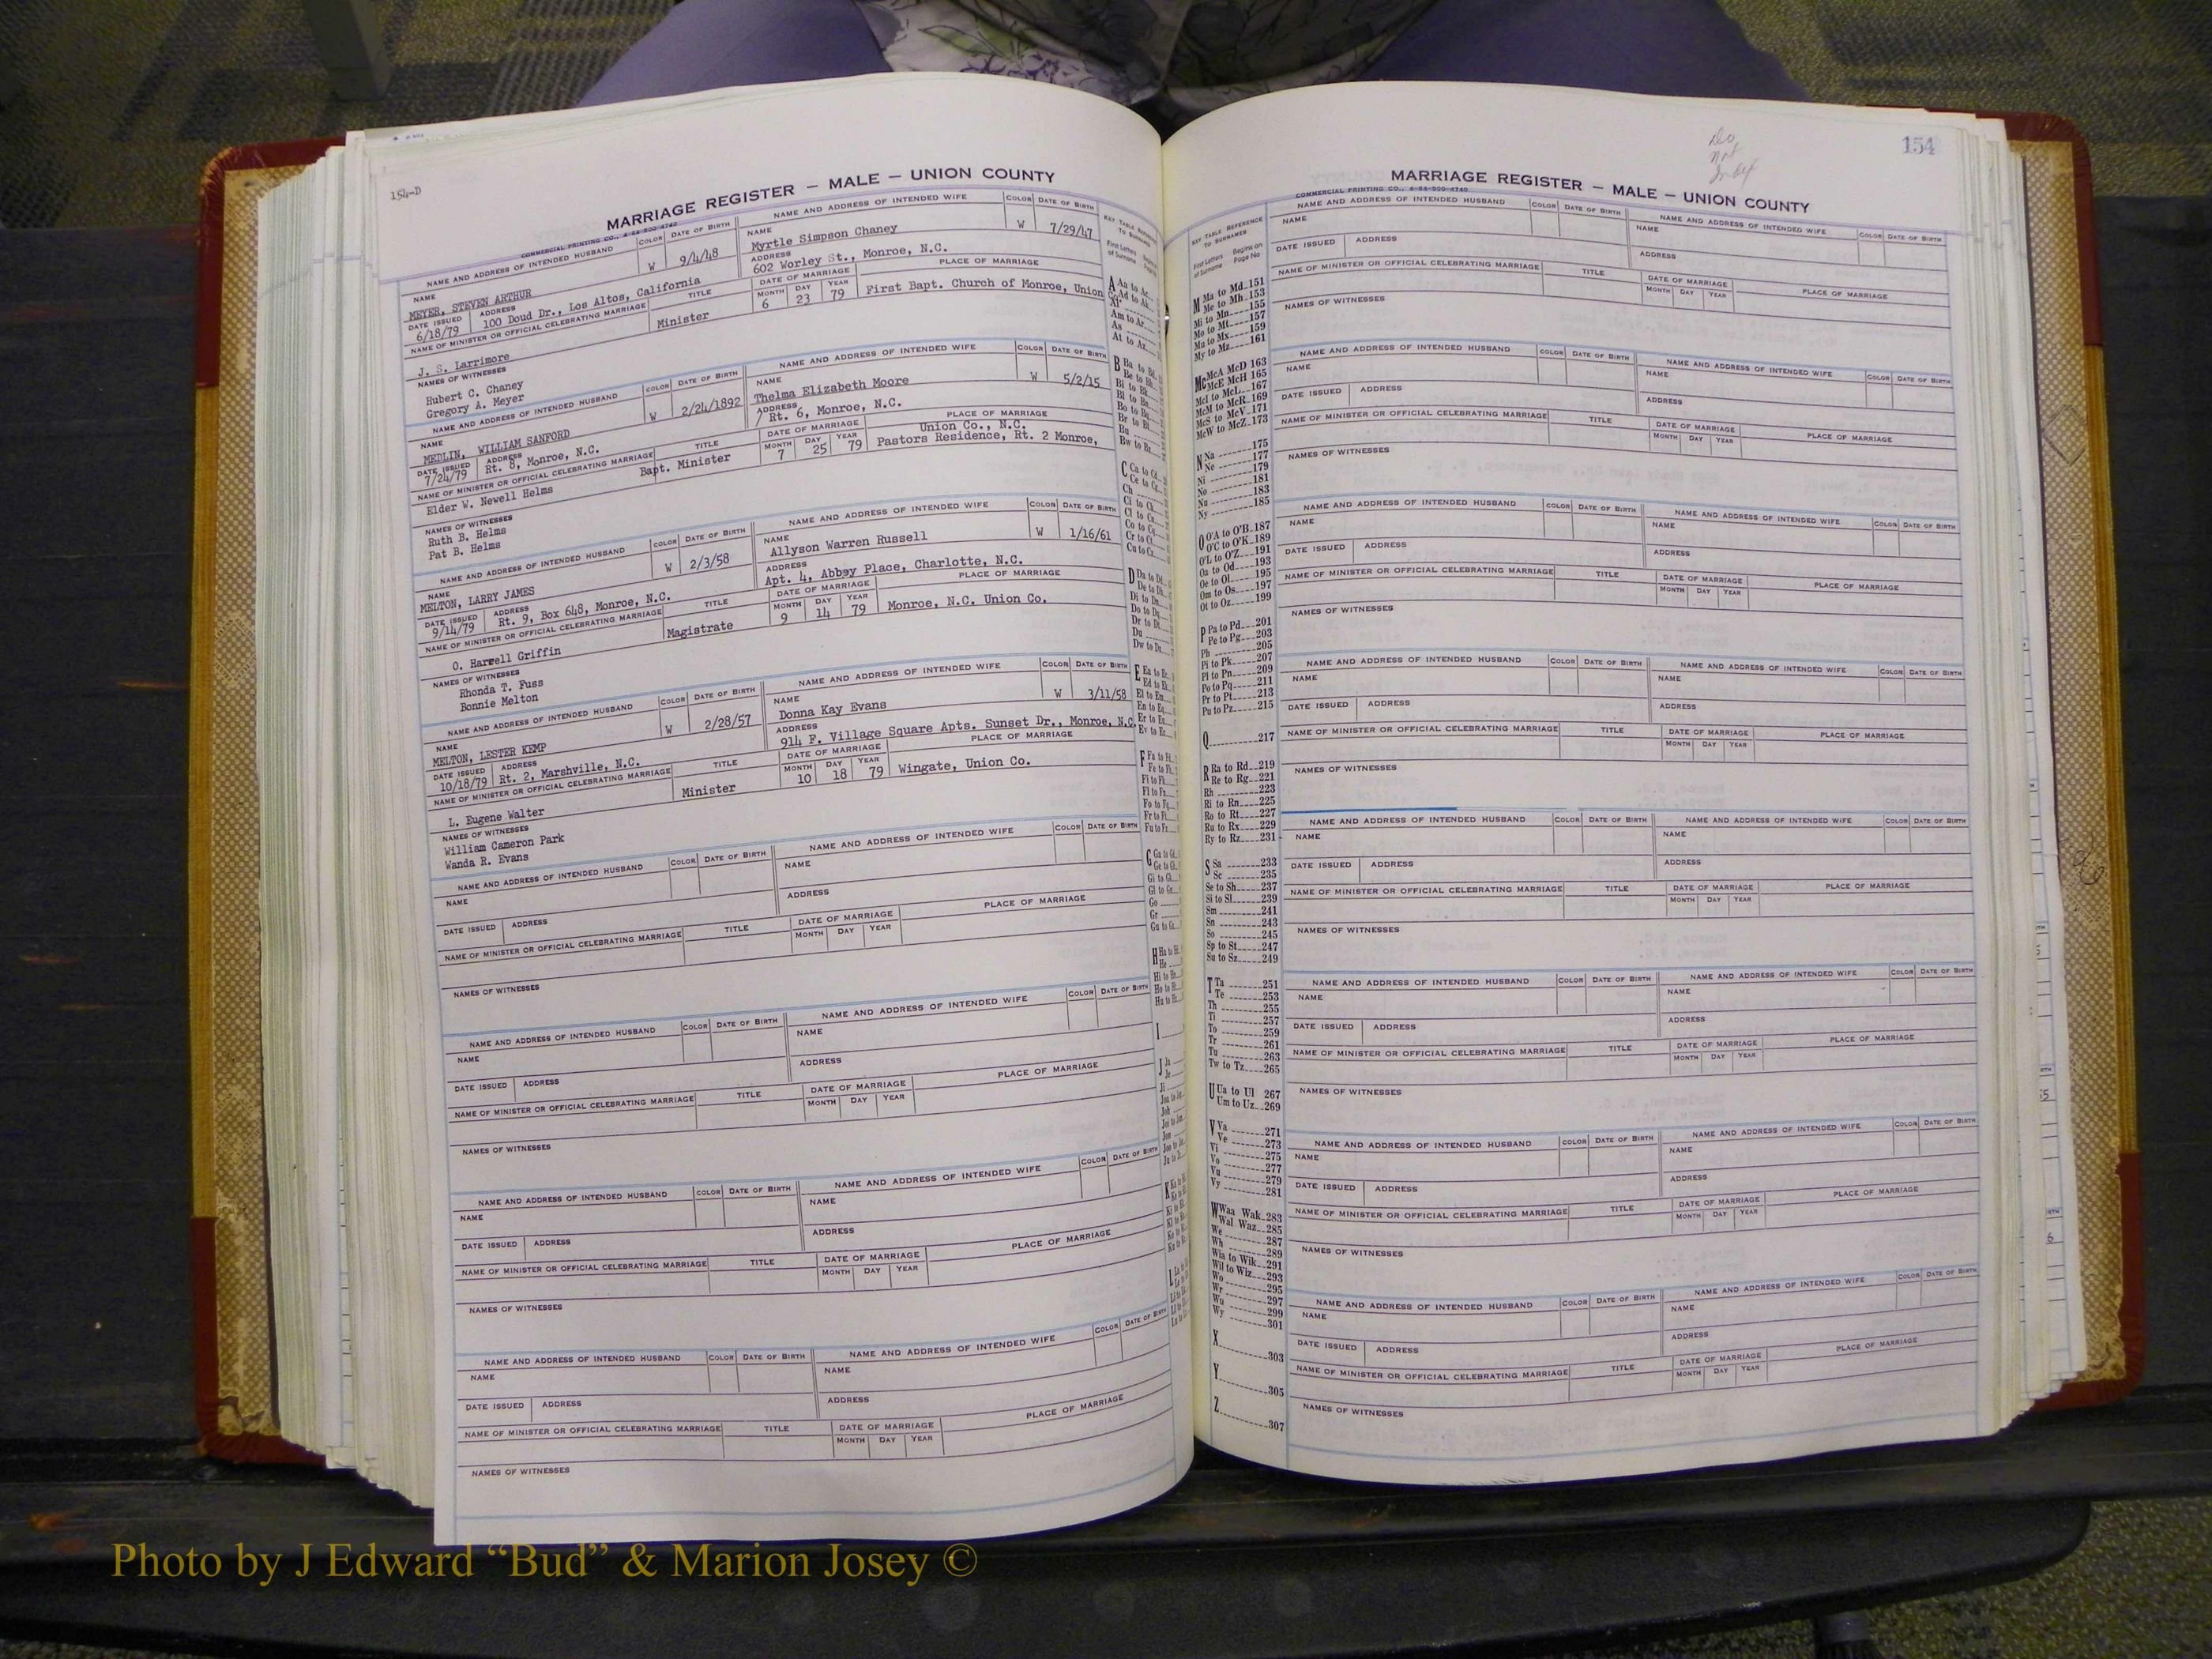 154-D
MARRIAGE REGISTER – MALE – UNION COUNTY
COMMERCIAL PRINTING CO.,
NAME AND ADDRESS OF INTENDED HUSBAND COLOR DATE OF BIRTH NAME AND ADDRESS OF INTENDED WIFE COLOR DATE OF BIRTH
NAME MEYER, STEVEN ARTHUR W 9/4/48 NAME Myrtle Simpson Chaney W 7/29/47
DATE ISSUED 6/18/79 ADDRESS 100 Doud Dr., Los Altos, California ADDRESS 602 Worley St., Monroe, N.C.
NAME OF MINISTER OR OFFICIAL CELEBRATING MARRIAGE TITLE DATE OF MARRIAGE PLACE OF MARRIAGE
MONTH DAY YEAR
J. S. Larrimore Minister 6 23 79 First Bapt. Church of Monroe, Union
NAMES OF WITNESSES
Hubert C. Chaney
Gregory A. Meyer
NAME AND ADDRESS OF INTENDED HUSBAND COLOR DATE OF BIRTH NAME AND ADDRESS OF INTENDED WIFE COLOR DATE OF BIRTH
NAME MEDLIN, WILLIAM SANFORD W 2/24/1892 NAME Thelma Elizabeth Moore W 5/2/15
DATE ISSUED 7/24/79 ADDRESS Rt. 8, Monroe, N.C. ADDRESS Rt. 6, Monroe, N.C.
NAME OF MINISTER OR OFFICIAL CELEBRATING MARRIAGE TITLE DATE OF MARRIAGE PLACE OF MARRIAGE
MONTH DAY YEAR Union Co., N.C.
Elder W. Newell Helms Bapt. Minister 7 25 79 Pastors Residence, Rt. 2 Monroe,
NAMES OF WITNESSES
Ruth B. Helms
Pat B. Helms
NAME AND ADDRESS OF INTENDED HUSBAND COLOR DATE OF BIRTH NAME AND ADDRESS OF INTENDED WIFE COLOR DATE OF BIRTH
NAME MELTON, LARRY JAMES W 2/3/58 NAME Allyson Warren Russell W 1/16/61
DATE ISSUED 9/14/79 ADDRESS Rt. 9, Box 648, Monroe, N.C. ADDRESS Apt. 4, Abbey Place, Charlotte, N.C.
NAME OF MINISTER OR OFFICIAL CELEBRATING MARRIAGE TITLE DATE OF MARRIAGE PLACE OF MARRIAGE
MONTH DAY YEAR
O. Harrell Griffin Magistrate 9 14 79 Monroe, N.C. Union Co.
NAMES OF WITNESSES
Rhonda T. Fuss
Bonnie Melton
NAME AND ADDRESS OF INTENDED HUSBAND COLOR DATE OF BIRTH NAME AND ADDRESS OF INTENDED WIFE COLOR DATE OF BIRTH
NAME MELTON, LESTER KEMP W 2/28/57 NAME Donna Kay Evans W 3/11/58
DATE ISSUED 10/18/79 ADDRESS Rt. 2, Marshville, N.C. ADDRESS 914 F. Village Square Apts. Sunset Dr., Monroe, N.C.
NAME OF MINISTER OR OFFICIAL CELEBRATING MARRIAGE TITLE DATE OF MARRIAGE PLACE OF MARRIAGE
MONTH DAY YEAR
L. Eugene Walter Minister 10 18 79 Wingate, Union Co.
NAMES OF WITNESSES
William Cameron Park
Wanda R. Evans
NAME AND ADDRESS OF INTENDED HUSBAND COLOR DATE OF BIRTH NAME AND ADDRESS OF INTENDED WIFE COLOR DATE OF BIRTH
NAME NAME
DATE ISSUED ADDRESS ADDRESS
NAME OF MINISTER OR OFFICIAL CELEBRATING MARRIAGE TITLE DATE OF MARRIAGE PLACE OF MARRIAGE
MONTH DAY YEAR
NAMES OF WITNESSES
NAME AND ADDRESS OF INTENDED HUSBAND COLOR DATE OF BIRTH NAME AND ADDRESS OF INTENDED WIFE COLOR DATE OF BIRTH
NAME NAME
DATE ISSUED ADDRESS ADDRESS
NAME OF MINISTER OR OFFICIAL CELEBRATING MARRIAGE TITLE DATE OF MARRIAGE PLACE OF MARRIAGE
MONTH DAY YEAR
NAMES OF WITNESSES
NAME AND ADDRESS OF INTENDED HUSBAND COLOR DATE OF BIRTH NAME AND ADDRESS OF INTENDED WIFE COLOR DATE OF BIRTH
NAME NAME
DATE ISSUED ADDRESS ADDRESS
NAME OF MINISTER OR OFFICIAL CELEBRATING MARRIAGE TITLE DATE OF MARRIAGE PLACE OF MARRIAGE
MONTH DAY YEAR
NAMES OF WITNESSES
NAME AND ADDRESS OF INTENDED HUSBAND COLOR DATE OF BIRTH NAME AND ADDRESS OF INTENDED WIFE COLOR DATE OF BIRTH
NAME NAME
DATE ISSUED ADDRESS ADDRESS
NAME OF MINISTER OR OFFICIAL CELEBRATING MARRIAGE TITLE DATE OF MARRIAGE PLACE OF MARRIAGE
MONTH DAY YEAR
NAMES OF WITNESSES
Do
not
Index
154
MARRIAGE REGISTER – MALE – UNION COUNTY
COMMERCIAL PRINTING CO.,
KEY TABLE REFERENCE
TO SURNAMES
First Letters of Surname Begins on Page No
M Ma to Md 151
Me to Mh 153
Mi to Mn 155
Mo to Mt 157
Mu to Mx 159
My to Mz 161
Mc McA McD 163
McE McH 165
McI to McL 167
McM to McR 169
McS to McV 171
McW to McZ 173
N Na 175
Ne 177
Ni 179
No 181
Nu 183
Ny 185
O O'A to O'B 187
O'C to O'K 189
O'L to O'Z 191
Oa to Od 193
Oe to Ol 195
Om to Os 197
Ot to Oz 199
P Pa to Pd 201
Pe to Pg 203
Ph 205
Pi to Pk 207
Pl to Pn 209
Po to Pq 211
Pr to Pt 213
Pu to Pz 215
Q 217
R Ra to Rd 219
Re to Rg 221
Rh 223
Ri to Rn 225
Ro to Rt 227
Ru to Rx 229
Ry to Rz 231
S Sa 233
Sc 235
Se to Sh 237
Si to Sl 239
Sm 241
Sn 243
So 245
Sp to St 247
Su to Sz 249
T Ta 251
Te 253
Th 255
Ti 257
To 259
Tr 261
Tu 263
Tw to Tz 265
U Ua to Ul 267
Um to Uz 269
V Va 271
Ve 273
Vi 275
Vo 277
Vu 279
Vy 281
W Waa Wak 283
Wal Waz 285
We 287
Wh 289
Wia to Wik 291
Wil to Wiz 293
Wo 295
Wr 297
Wu 299
Wy 301
X 303
Y 305
Z 307
NAME AND ADDRESS OF INTENDED HUSBAND COLOR DATE OF BIRTH NAME AND ADDRESS OF INTENDED WIFE COLOR DATE OF BIRTH
NAME NAME
DATE ISSUED ADDRESS ADDRESS
NAME OF MINISTER OR OFFICIAL CELEBRATING MARRIAGE TITLE DATE OF MARRIAGE PLACE OF MARRIAGE
MONTH DAY YEAR
NAMES OF WITNESSES
NAME AND ADDRESS OF INTENDED HUSBAND COLOR DATE OF BIRTH NAME AND ADDRESS OF INTENDED WIFE COLOR DATE OF BIRTH
NAME NAME
DATE ISSUED ADDRESS ADDRESS
NAME OF MINISTER OR OFFICIAL CELEBRATING MARRIAGE TITLE DATE OF MARRIAGE PLACE OF MARRIAGE
MONTH DAY YEAR
NAMES OF WITNESSES
NAME AND ADDRESS OF INTENDED HUSBAND COLOR DATE OF BIRTH NAME AND ADDRESS OF INTENDED WIFE COLOR DATE OF BIRTH
NAME NAME
DATE ISSUED ADDRESS ADDRESS
NAME OF MINISTER OR OFFICIAL CELEBRATING MARRIAGE TITLE DATE OF MARRIAGE PLACE OF MARRIAGE
MONTH DAY YEAR
NAMES OF WITNESSES
NAME AND ADDRESS OF INTENDED HUSBAND COLOR DATE OF BIRTH NAME AND ADDRESS OF INTENDED WIFE COLOR DATE OF BIRTH
NAME NAME
DATE ISSUED ADDRESS ADDRESS
NAME OF MINISTER OR OFFICIAL CELEBRATING MARRIAGE TITLE DATE OF MARRIAGE PLACE OF MARRIAGE
MONTH DAY YEAR
NAMES OF WITNESSES
NAME AND ADDRESS OF INTENDED HUSBAND COLOR DATE OF BIRTH NAME AND ADDRESS OF INTENDED WIFE COLOR DATE OF BIRTH
NAME NAME
DATE ISSUED ADDRESS ADDRESS
NAME OF MINISTER OR OFFICIAL CELEBRATING MARRIAGE TITLE DATE OF MARRIAGE PLACE OF MARRIAGE
MONTH DAY YEAR
NAMES OF WITNESSES
NAME AND ADDRESS OF INTENDED HUSBAND COLOR DATE OF BIRTH NAME AND ADDRESS OF INTENDED WIFE COLOR DATE OF BIRTH
NAME NAME
DATE ISSUED ADDRESS ADDRESS
NAME OF MINISTER OR OFFICIAL CELEBRATING MARRIAGE TITLE DATE OF MARRIAGE PLACE OF MARRIAGE
MONTH DAY YEAR
NAMES OF WITNESSES
NAME AND ADDRESS OF INTENDED HUSBAND COLOR DATE OF BIRTH NAME AND ADDRESS OF INTENDED WIFE COLOR DATE OF BIRTH
NAME NAME
DATE ISSUED ADDRESS ADDRESS
NAME OF MINISTER OR OFFICIAL CELEBRATING MARRIAGE TITLE DATE OF MARRIAGE PLACE OF MARRIAGE
MONTH DAY YEAR
NAMES OF WITNESSES
NAME AND ADDRESS OF INTENDED HUSBAND COLOR DATE OF BIRTH NAME AND ADDRESS OF INTENDED WIFE COLOR DATE OF BIRTH
NAME NAME
DATE ISSUED ADDRESS ADDRESS
NAME OF MINISTER OR OFFICIAL CELEBRATING MARRIAGE TITLE DATE OF MARRIAGE PLACE OF MARRIAGE
MONTH DAY YEAR
NAMES OF WITNESSES
Photo by J Edward “Bud” & Marion Josey ©